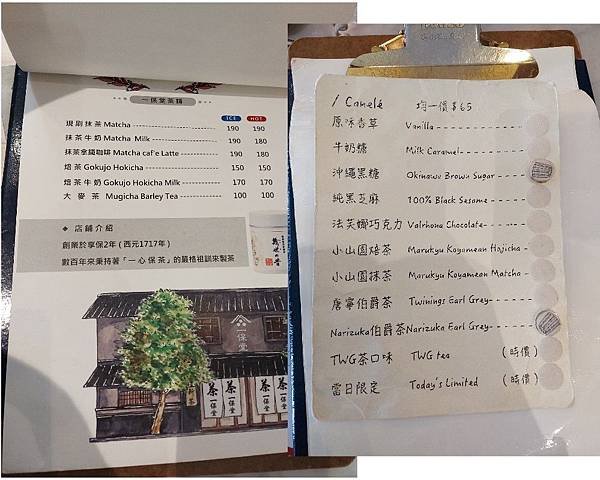 一保堂茶輔
ICE HOT
現刷抹茶 Matcha 190 190
抹茶牛奶 Matcha Milk 190 180
抹茶拿鐵咖啡 Matcha caf'e Latte 190 180
焙茶 Gokujo Hokicha 150 150
焙茶牛奶 Gokujo Hokicha Milk 170 170
大麥茶 Mugicha Barley Tea 100 100
◆ 店鋪介紹
創業於享保2年（西元1717年）
數百年來秉持著「一心保茶」的嚴格祖訓來製茶
一保堂
茶 一保堂
茶 一保堂
茶 一保堂
/ Canelé 均一價 $65
原味香草 Vanilla
牛奶糖 Milk Caramel
沖繩黑糖 Okinawa Brown Sugar
純黑芝麻 100% Black Sesame
法芙娜巧克力 Valrhona Chocolate
小山園焙茶 Marukyu Koyamean Hojicha
小山園抹茶 Marukyu Koyamean Matcha
唐寧伯爵茶 Twinings Earl Grey
Narizuka伯爵茶 Narizuka Earl Grey
TWG茶口味 TWG tea (時價)
當日限定 Today's Limited (時價)